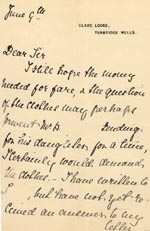 June 9th
CLARE LODGE,
TUNBRIDGE WELLS.
Dear Sir
I still hope the money
needed for fare, & the question
of the clothes may perhaps
prevent Mr B. sending
for his daughter for a time,
I certainly would demand
the clothes. I have written to
but have not yet re-
ceived an answer to my
letter